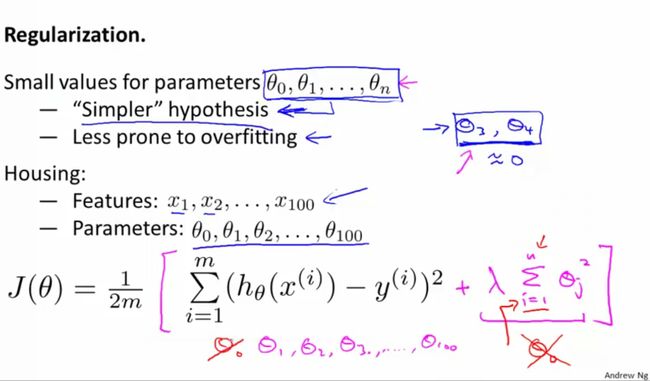 Regularization.
Small values for parameters θ₀, θ₁, . . . , θₙ
— “Simpler” hypothesis
— Less prone to overfitting
θ₃, θ₄
≈ 0
Housing:
— Features: x₁, x₂, . . . , x₁₀₀
— Parameters: θ₀, θ₁, θ₂, . . . , θ₁₀₀
J(θ) = 1/2m [ Σᵢ₌₁ᵐ (h_θ(x⁽ⁱ⁾) − y⁽ⁱ⁾)² + λ Σᵢ₌₁ⁿ θⱼ² ]
θ₀ θ₁, θ₂, θ₃, ....., θ₁₀₀ θ₀
Andrew Ng